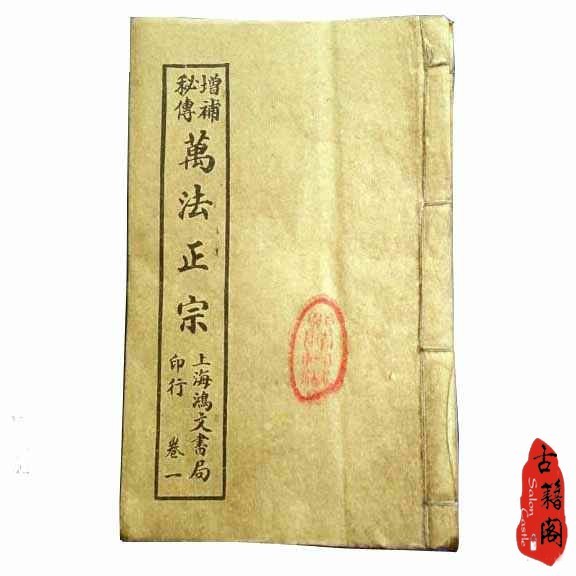 增補
秘傳
萬法正宗
上海鴻文書局
印行
卷一
古籍阁
Salon
Castle